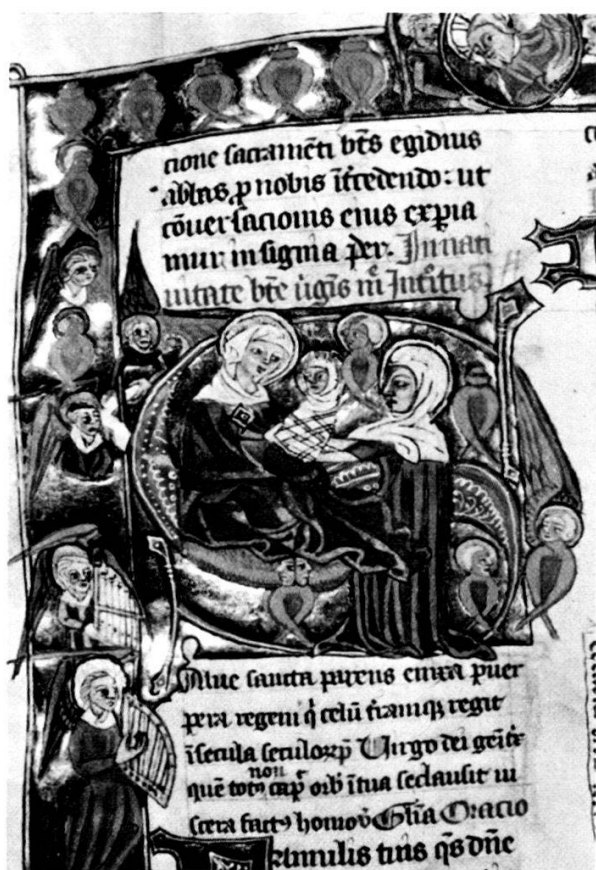 cione sacramēti bt̄s egidius
ablas p nobis ītcedendo: ut
cōuersacionis eius expia
mur insignia per. In nati
uitate bt̄e uigīs mͬ Intͦitus
alue sancta parens enixa puer
pera regem q̇ celū tͥramqꝫ regit
ī secula seculoꝝ ꝑ Uirgo dei
quē totꝰ non capͥ orbͥ ī tua se clausit ui
scera factꝰ homo v̄ Glīa Oracio
Famulis tuis qs̄ dn̄e